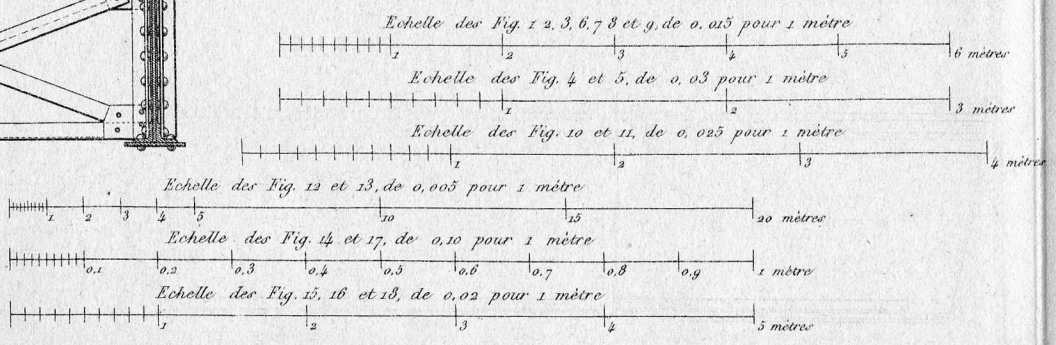 Echelle des Fig. 1 2, 3, 6, 7 8 et 9, de 0, 015 pour 1 métre
1 2 3 4 5 6 mètres
Echelle des Fig. 4 et 5, de 0, 03 pour 1 mètre
1 2 3 mètres
Echelle des Fig. 10 et 11, de 0, 025 pour 1 mètre
1 2 3 4 mètres
Echelle des Fig. 12 et 13, de 0,005 pour 1 métre
1 2 3 4 5 10 15 20 mètres
Echelle des Fig. 14 et 17, de 0,10 pour 1 mètre
0,1 0,2 0,3 0,4 0,5 0,6 0,7 0,8 0,9 1 mètre
Echelle des Fig. 15, 16 et 18, de 0,02 pour 1 mètre
1 2 3 4 5 mètres